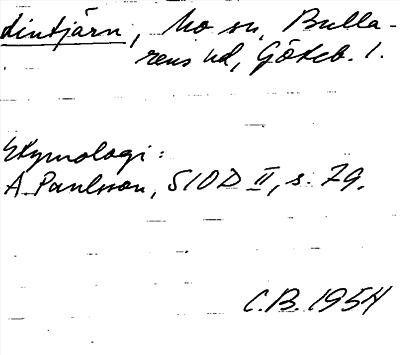 dintjärn, Mo sn, Bulla-
rens hd, Göteb. l.
Etymologi:
A. Paulsson, SIOD II, s. 79.
C.B. 1954